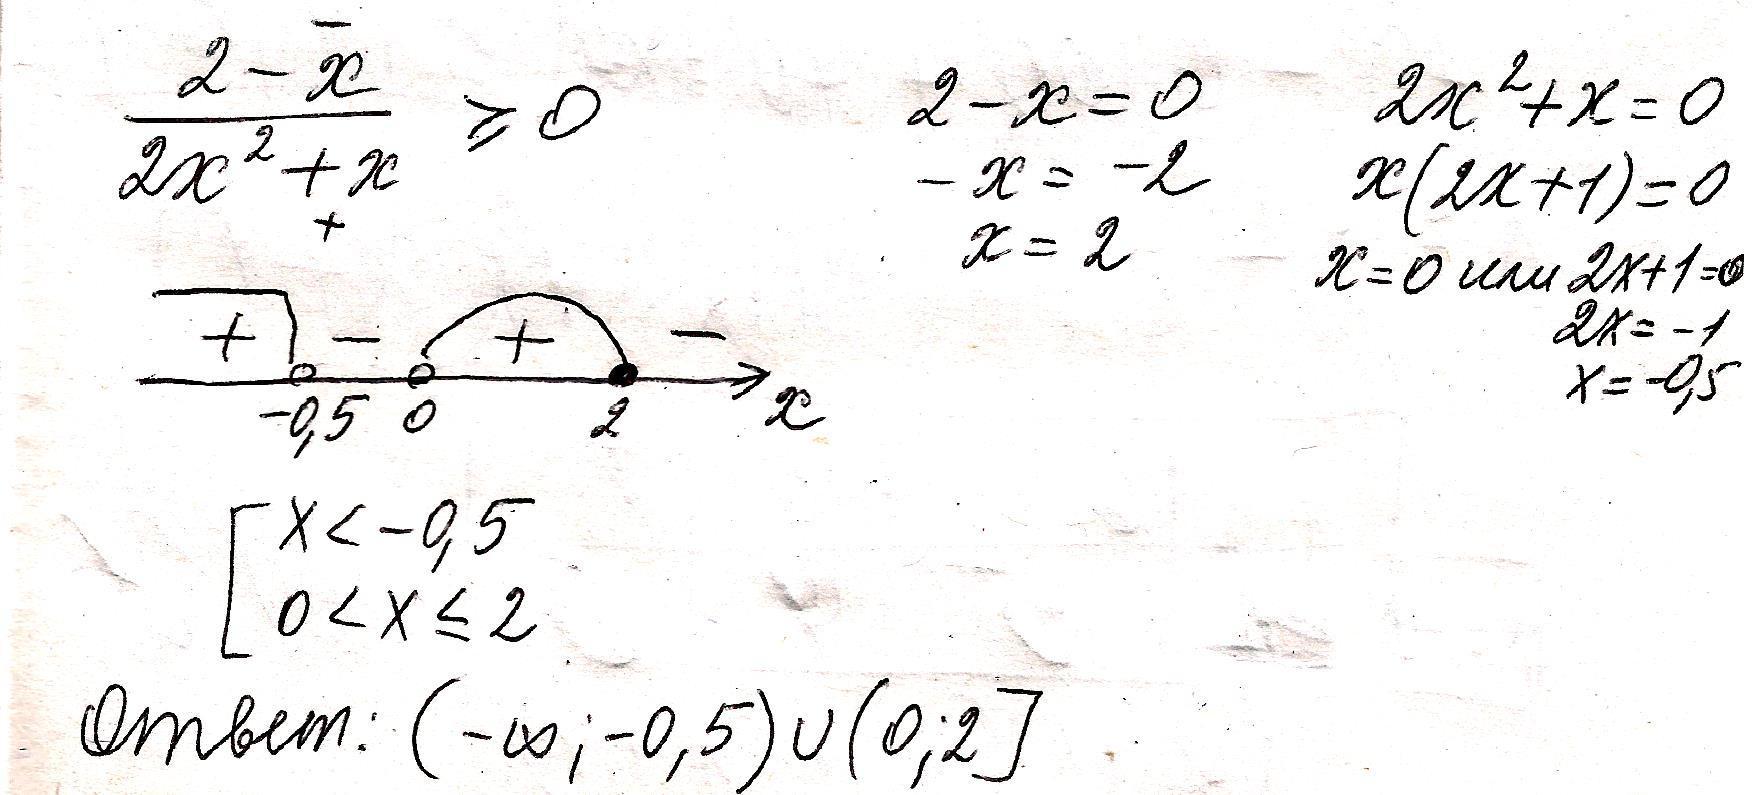 (2 - x)/(2x² + x) ≥ 0
−
+
2 - x = 0
-x = -2
x = 2
2x² + x = 0
x(2x+1) = 0
x = 0 или 2x+1=0
2x = -1
x = -0,5
+ − + −
-0,5 0 2 x
[ x < -0,5
0 < x ≤ 2
Ответ: (-∞; -0,5) ∪ (0; 2]